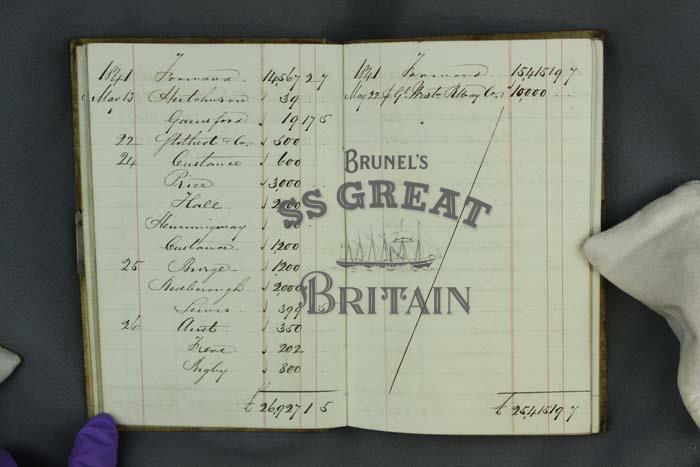 1841 Forward 14,567 2 7
May 13 Hutchinson 39
Gainsford 19 17 5
22 Stothert & Co 500
24 Custance 600
Price 3,000
Hall 2,000
Hemmingway 50
Custance 1,200
25 Burge 1,200
2,000
Lewis 399 5
26 Aust 350
202
Bigby 800
£ 26,927 1 5
1841 Forward 15,415 19 7
May 22 Gt Westn Rlway Co 10,000
£ 25,415 19 7
BRUNEL'S
SS GREAT
BRITAIN